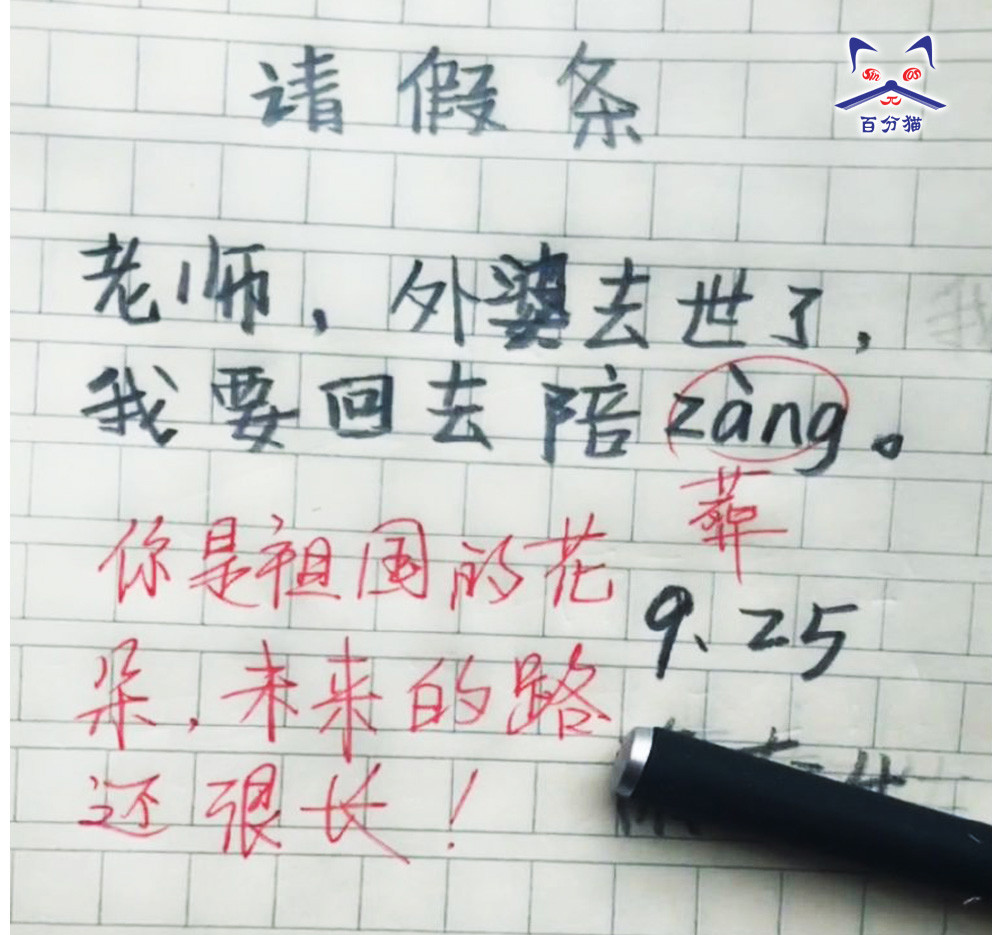 请假条
sin cos
π
百分猫
老师，外婆去世了，
我要回去陪zàng。
葬
你是祖国的花
9.25
朵，未来的路
还很长！